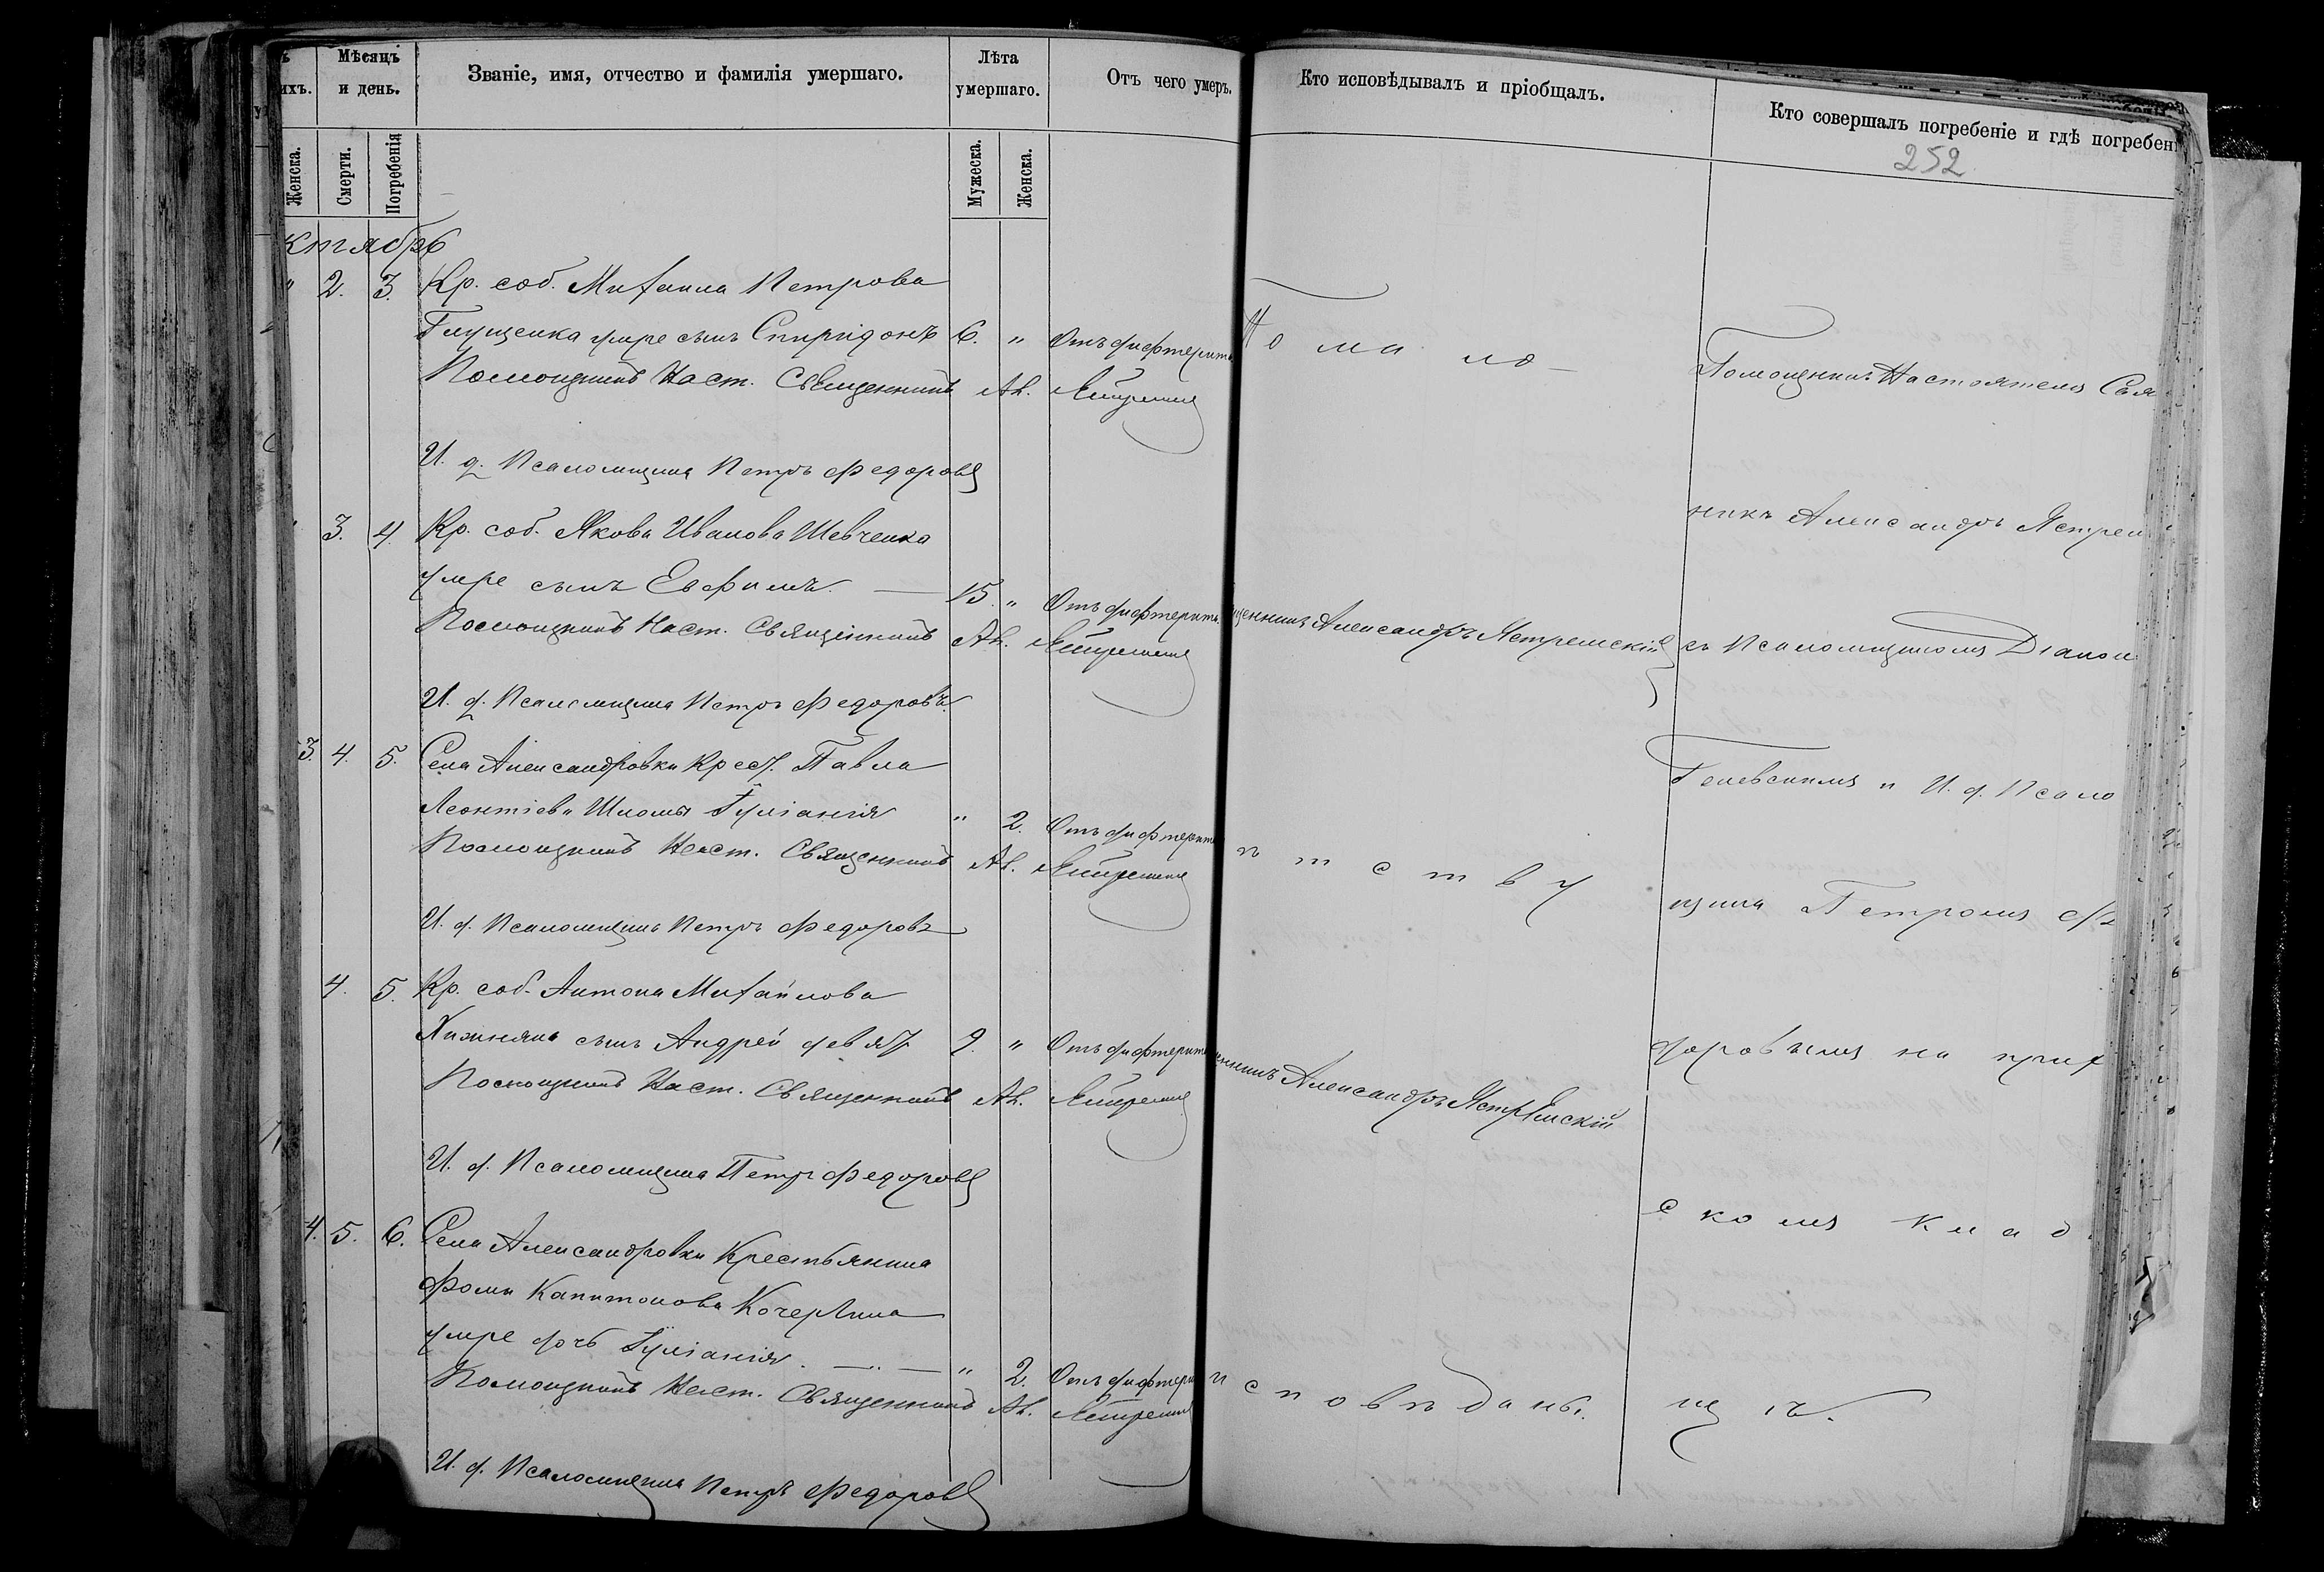 Мѣсяцъ и день.
Званіе, имя, отчество и фамилія умершаго.
Лѣта умершаго.
Отъ чего умеръ.
Кто исповѣдывалъ и пріобщалъ.
Кто совершалъ погребеніе и гдѣ погребен
252
ихъ.
Женска.
Смерти.
Погребенія
Мужеска.
Женска.
ктябрь
" 2. 3. Кр. соб. Михаила Петрова
Глущенка умре сынъ Спиридонъ 6. " Отъ дифтерита
Помощникъ Наст. Священникъ Ал.
И. д. Псаломщика Петръ Федоровъ
3. 4. Кр. соб. Якова Иванова Шевченка
умре сынъ Евфимъ. 15. " Отъ дифтерита
Помощникъ Наст. Священникъ Ал.
И. д. Псаломщика Петръ Федоровъ
3. 4. 5. Села Александровки Крест. Павла
Леонтіева Шломы Іуліанія " 2. Отъ дифтерита
Помощникъ Наст. Священникъ Ал.
И. д. Псаломщика Петръ Федоровъ
4. 5. Кр. соб. Антона Михайлова
Хижняка сынъ Андрей девят. 9. " Отъ дифтерита
Помощникъ Наст. Священникъ Ал.
И. д. Псаломщика Петръ Федоровъ
4. 5. 6. Села Александровки Крестьянина
Фомы Капитонова
умре дочь Іуліанія. " 2. Отъ дифтери
Помощникъ Наст. Священникъ Ал.
И. д. Псаломщика Петръ Федоровъ
По ма ло
щенникъ Александръ Ястремскій
ѣ т с т в у
енникъ Александръ Ястремскій
и с п о в ѣ д а н ы.
Помощникъ Настоятеля Свя
никъ Александръ Ястрем
съ Псаломщикомъ Діакон
и И. д. Псало
щика Петромъ Фе
доровымъ на прих
скомъ клад
щѣ.